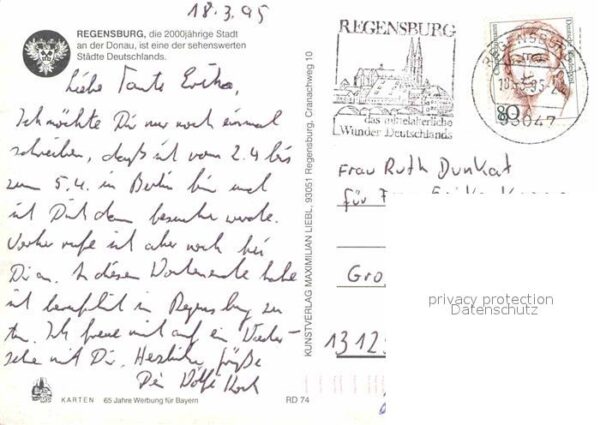 18.3.95
REGENSBURG, die 2000jährige Stadt
an der Donau, ist eine der sehenswerten
Städte Deutschlands.
Liebe Tante Erika,
Ich möchte Dir nur noch einmal
schreiben, daß ich vom 2.4 bis
zum 5.4. in Berlin bin und
ich Dich dann besuchen werde.
Vorher rufe ich aber noch bei
Dir an. In diesem Wochenende habe
ich beruflich in Regensburg zu
tun. Ich freue mich auf ein Wieder-
sehen mit Dir. Herzliche Grüße
Dein
KARTEN 65 Jahre Werbung für Bayern
RD 74
KUNSTVERLAG MAXIMILIAN LIEBL, 93051 Regensburg, Cranachweg 10
REGENSBURG
das mittelalterliche
Wunder Deutschlands
REGENSBURG 1
93047
80
Deutsche Bundespost
Frau Ruth Dunkat
für Frau Erika
Gro
1312
privacy protection
Datenschutz